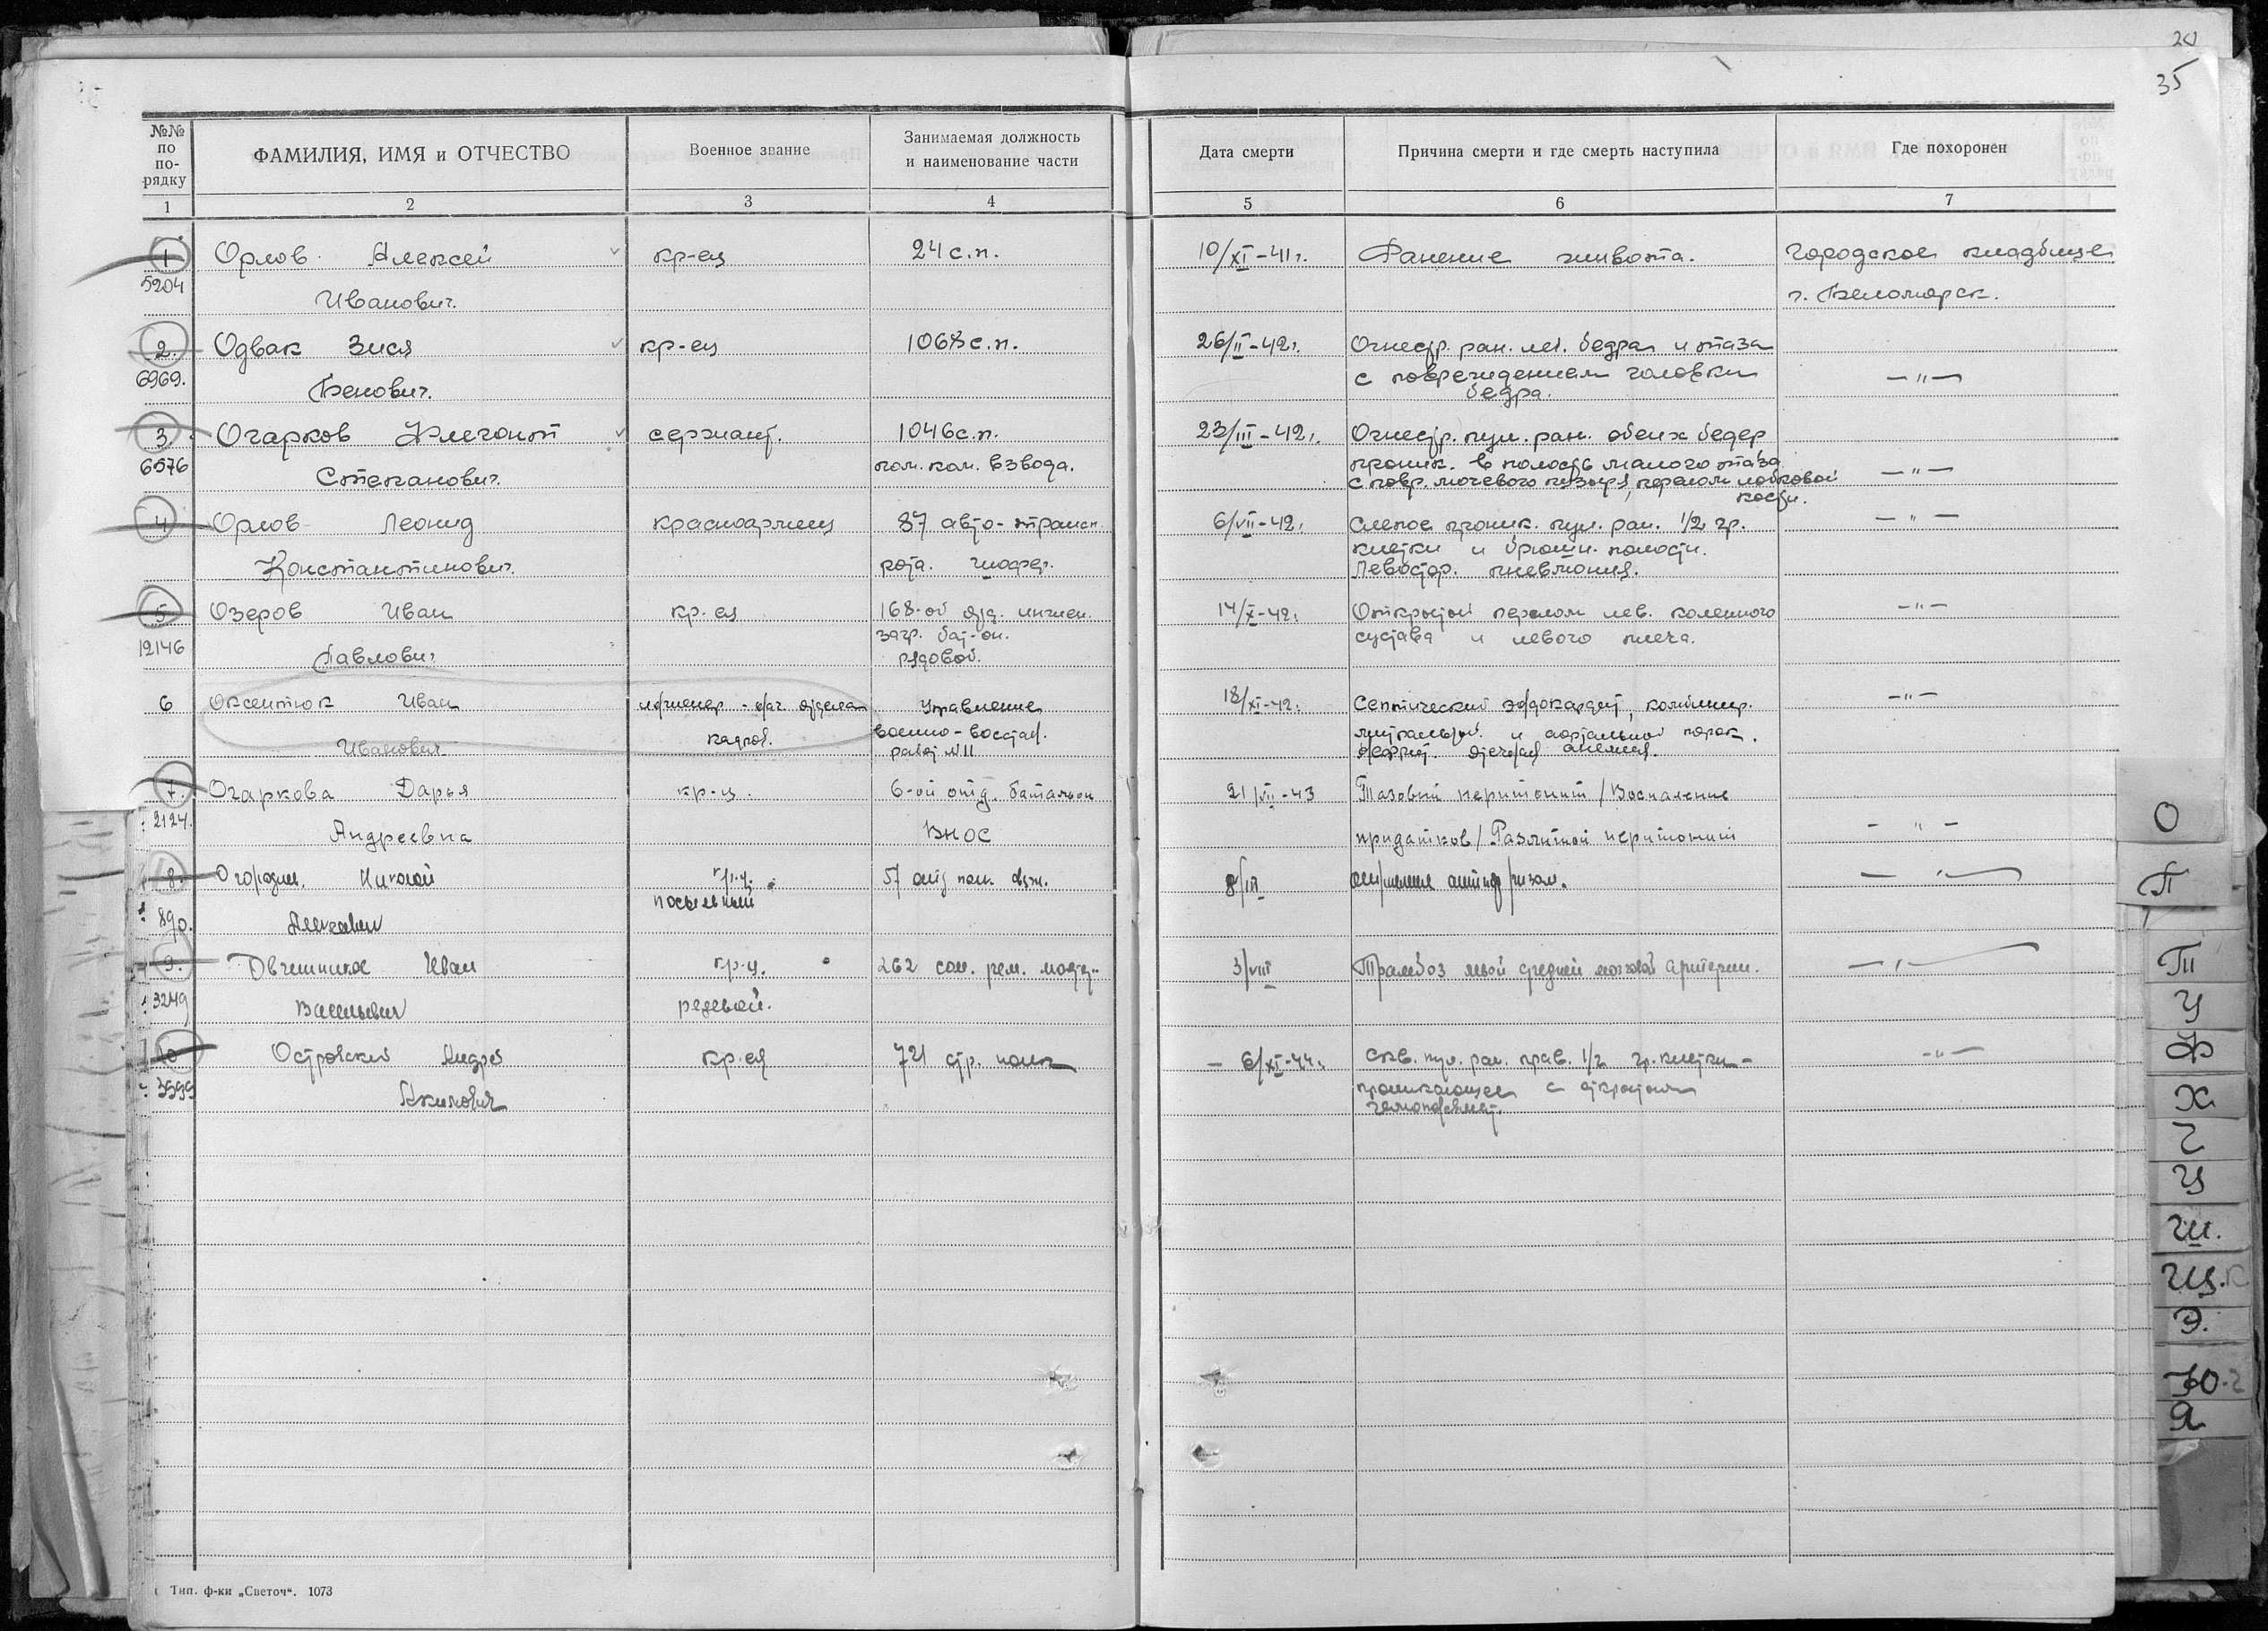 20
35
№№ по по-рядку
ФАМИЛИЯ, ИМЯ и ОТЧЕСТВО
Военное звание
Занимаемая должность и наименование части
Дата смерти
Причина смерти и где смерть наступила
Где похоронен
1 2 3 4 5 6 7
1 Орлов Алексей кр-ец 24 с.п. 10/XI-41г. Ранение живота. Городское кладбище
5204 Иванович. г. Беломорск.
2. Одвак Зися кр-ец 1068 с.п. 26/II-42г. Огнестр. ран. лев. бедра и таза
6969. Бенович. с повреждением головки — " —
бедра.
3. Огарков Клегонт сержант. 1046 с.п. 23/III-42г. Огнестр. пул. ран. обеих бедер
6576 Степанович. пом. ком. взвода. проник. в полость малого таза — " —
с повр. мочевого пузыря, перелом лобковой
кости.
4 Орлов Леонид красноармеец 87 авто-трансп. 6/VII-42г. Слепое проник. пул. ран. 1/2 гр. — " —
Константинович. рота. шофер. клетки и брюшн. полости.
Левостор. пневмония.
5 Озеров Иван кр-ец 168-ой отд. инжен. 14/X-42г. Открытый перелом лев. коленного — " —
12146 загр. бат-он. сустава и левого плеча.
Павлович рядовой.
6 Оксентюк Иван инженер - нач. отдела Управление 18/XI-42г. Септический эндокардит, комбинир. — " —
Иванович кадров. военно-восстан. митральный и аортальный порок.
работ №11 нефрит. анемия.
7. Огаркова Дарья кр-ц. 6-ой отд. батальон 21/VII-43 Тазовый перитонит /Воспаление
2124. Андреевна ВНОС придатков/ Разлитой перитонит — " —
8. Николай кр-ц. 57 отд полк связи. 8/III
890. посыльный
9. Овчинников Иван кр-ц. 262 3/VIII Тромбоз левой средней мозговой артерии.
3249 Васильевич рядовой.
10 Островский Андрей кр-ец 721 стр. полк — 6/XI-44г. Скв. пул. ран. прав. 1/2 гр. клетки — — " —
3999 Акимович проникающее с открытым
Тип. ф-ки „Светоч“. 1073
О
П
Т
У
Ф
Х
Ч
Ц
Ш.
Щ.
Э.
Ю
Я